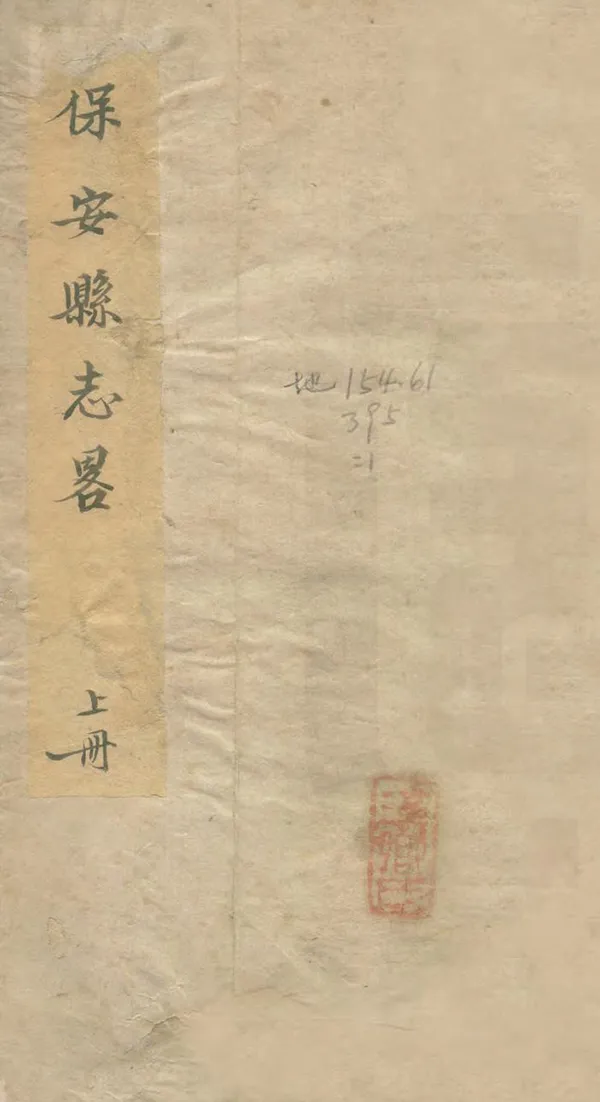 保安縣志畧
上冊
地154.61
395
:1